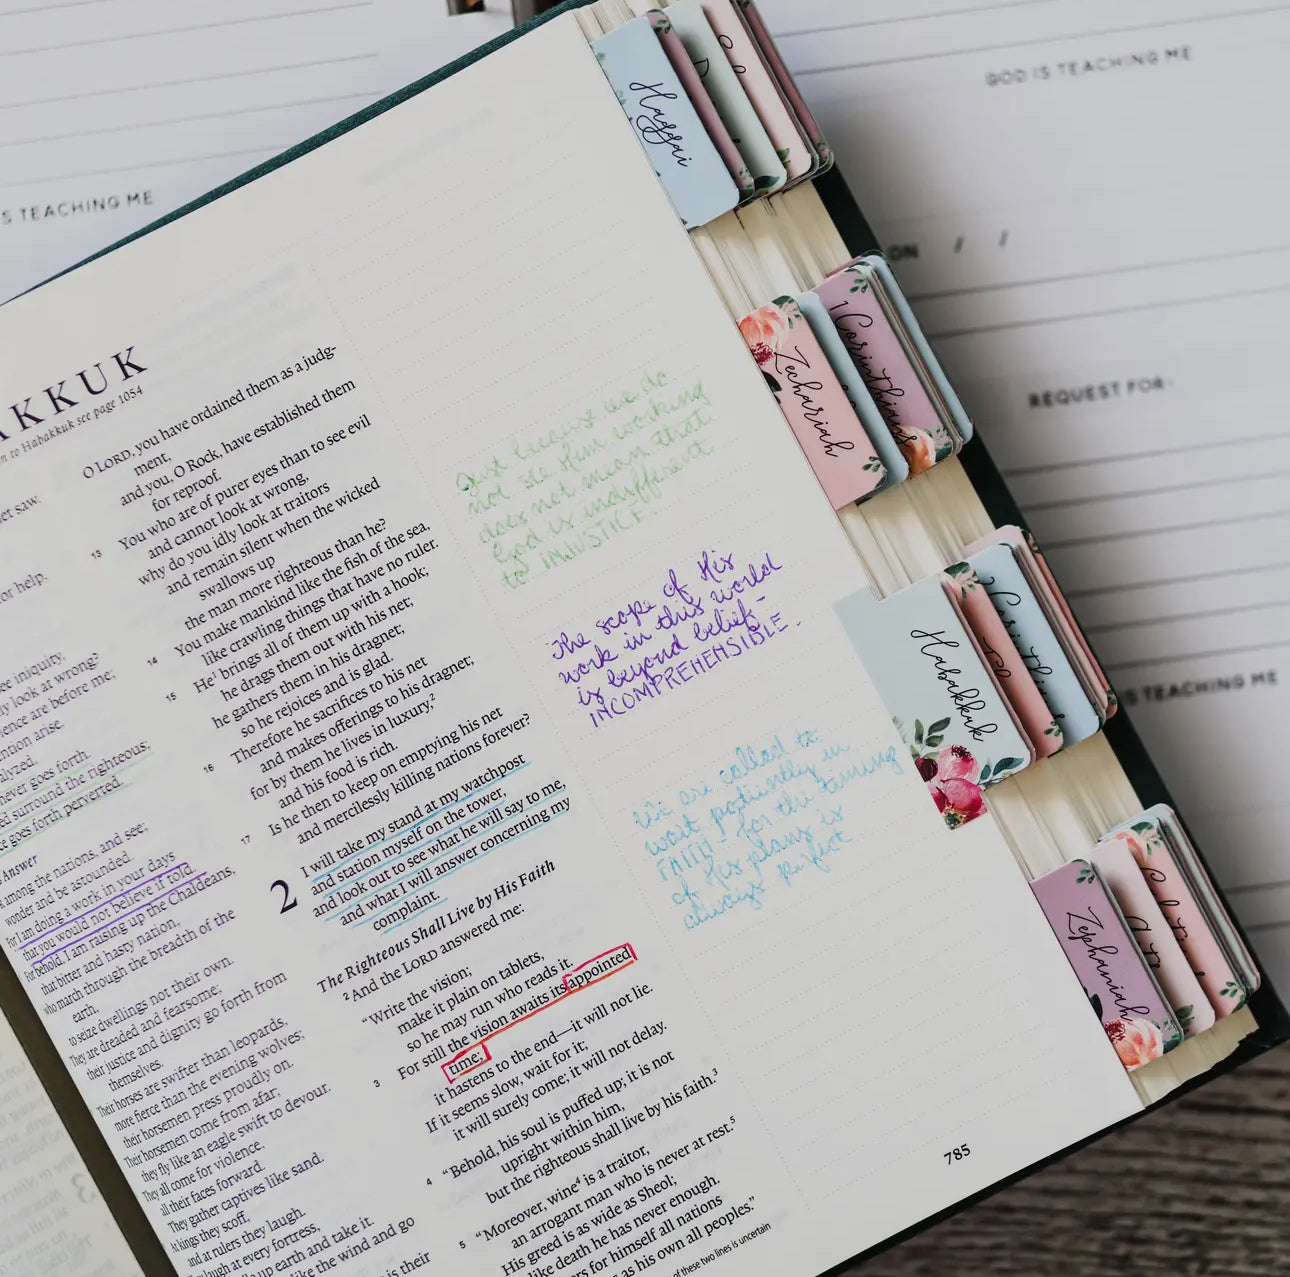 GOD IS TEACHING ME
S TEACHING ME
ON / /
REQUEST FOR:
IS TEACHING ME
Haggai
Zechariah
1 Corinthians
Habakkuk
Zephaniah
AKKUK
n to Habakkuk see page 1054
et saw.
or help.
ee iniquity,
ly look at wrong?
ence are before me;
ntion arise.
alyzed,
never goes forth.
ed surround the righteous;
e goes forth perverted.
Answer
among the nations, and see;
wonder and be astounded.
For I am doing a work in your days
that you would not believe if told.
For behold, I am raising up the Chaldeans,
that bitter and hasty nation,
who march through the breadth of the
earth,
to seize dwellings not their own.
They are dreaded and fearsome;
their justice and dignity go forth from
themselves.
Their horses are swifter than leopards,
more fierce than the evening wolves;
their horsemen press proudly on.
Their horsemen come from afar;
they fly like an eagle swift to devour.
They all come for violence,
all their faces forward.
They gather captives like sand.
At kings they scoff,
and at rulers they laugh.
laugh at every fortress,
e up earth and take it.
like the wind and go
is their
O LORD, you have ordained them as a judg-
ment,
and you, O Rock, have established them
for reproof.
13 You who are of purer eyes than to see evil
and cannot look at wrong,
why do you idly look at traitors
and remain silent when the wicked
swallows up
the man more righteous than he?
14 You make mankind like the fish of the sea,
like crawling things that have no ruler.
15 He¹ brings all of them up with a hook;
he drags them out with his net;
he gathers them in his dragnet;
so he rejoices and is glad.
16 Therefore he sacrifices to his net
and makes offerings to his dragnet;
for by them he lives in luxury,²
and his food is rich.
17 Is he then to keep on emptying his net
and mercilessly killing nations forever?
2 I will take my stand at my watchpost
and station myself on the tower,
and look out to see what he will say to me,
and what I will answer concerning my
complaint.
The Righteous Shall Live by His Faith
2 And the LORD answered me:
“Write the vision;
make it plain on tablets,
so he may run who reads it.
3 For still the vision awaits its appointed
time;
it hastens to the end—it will not lie.
If it seems slow, wait for it;
it will surely come; it will not delay.
4 “Behold, his soul is puffed up; it is not
upright within him,
but the righteous shall live by his faith.³
5 “Moreover, wine⁴ is a traitor,
an arrogant man who is never at rest.⁵
His greed is as wide as Sheol;
like death he has never enough.
ers for himself all nations
s as his own all peoples.”
of these two lines is uncertain
Just because we do
not see Him working
does not mean that
God is indifferent
to INJUSTICE
The scope of His
work in this world
is beyond belief-
INCOMPREHENSIBLE.
We are called to
wait patiently in
FAITH- for the timing
of His plans is
always perfect
785